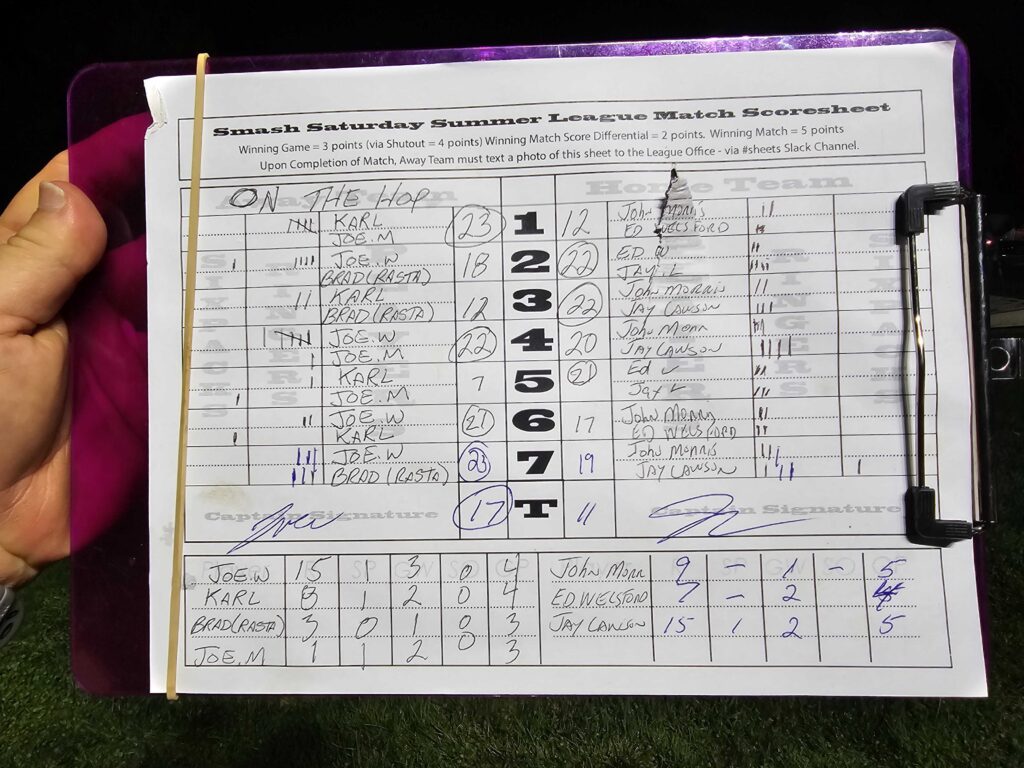 Smash Saturday Summer League Match Scoresheet
Winning Game = 3 points (via Shutout = 4 points) Winning Match Score Differential = 2 points. Winning Match = 5 points
Upon Completion of Match, Away Team must text a photo of this sheet to the League Office - via #sheets Slack Channel.
ON THE HOP Home Team
KARL 23 1 12 John Morris
JOE.M ED WELSFORD
JOE.W 18 2 22 ED W
BRAD(RASTA) JAY.L
KARL 12 3 22 John Morris
BRAD(RASTA) JAY LAWSON
JOE.W 22 4 20 John Morr
JOE.M JAY LAWSON
KARL 7 5 21 Ed W
JOE.M Jay L
JOE.W 21 6 17 John Morris
KARL ED WELSFORD
JOE.W 23 7 19 John Morris
BRAD(RASTA) JAY LAWSON
Captain Signature 17 T 11 Captain Signature
JOE.W 15 1 3 0 4 John Morr 9 - 1 - 5
KARL 8 1 2 0 4 ED WELSFORD 7 - 2
BRAD(RASTA) 3 0 1 0 3 JAY LAWSON 15 1 2 5
JOE.M 1 1 2 0 3